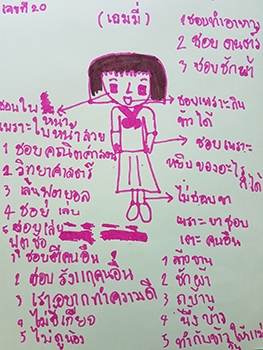 เลขที่ 20
(เฌมมี่)
1 ชอบทำอาหาร
2 ชอบ ดนตรี
3 ชอบ ซักผ้า
ชอบใบหน้า
เพราะใบหน้าสวย
1 ชอบ คณิตศาสตร์
2 วิทยาศาสตร์
3 เล่นฟุตบอล
4 ชอบ เล่น
5 ชอบเล่น
ฟุตซอ
ชอบเพราะกิน
ข้าวได้
ชอบ เพราะ
หยิบของอะไรก็ได้
ไม่ชอบขา
เพราะ ขาชอบ
เตะ คนอื่น
1 ชอบตีคนอื่น
2 ชอบ รังแกคนอื่น
3 เราอยากทำความดี
4 ไม่ขี้เกียจ
5
1 ล้างจาน
2 ซักผ้า
3 ถูบ้าน
4 นึ่งข้าว
5 ทำกับข้าว